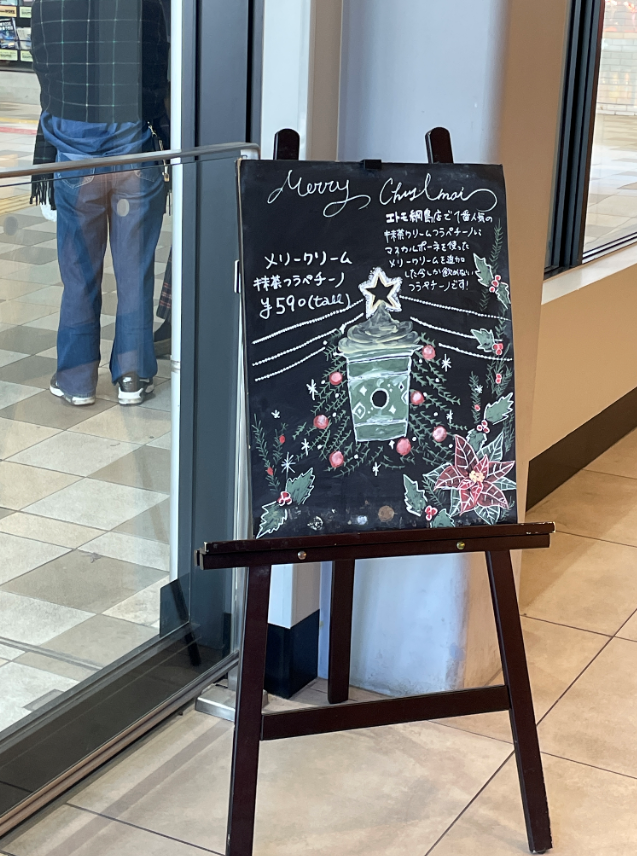 Merry Christmas
エトモ綱島店で1番人気の
抹茶クリームフラペチーノに
マスカルポーネを使った
メリークリームを追加
した今しか飲めない
フラペチーノです!
メリークリーム
抹茶フラペチーノ
¥590(tall)